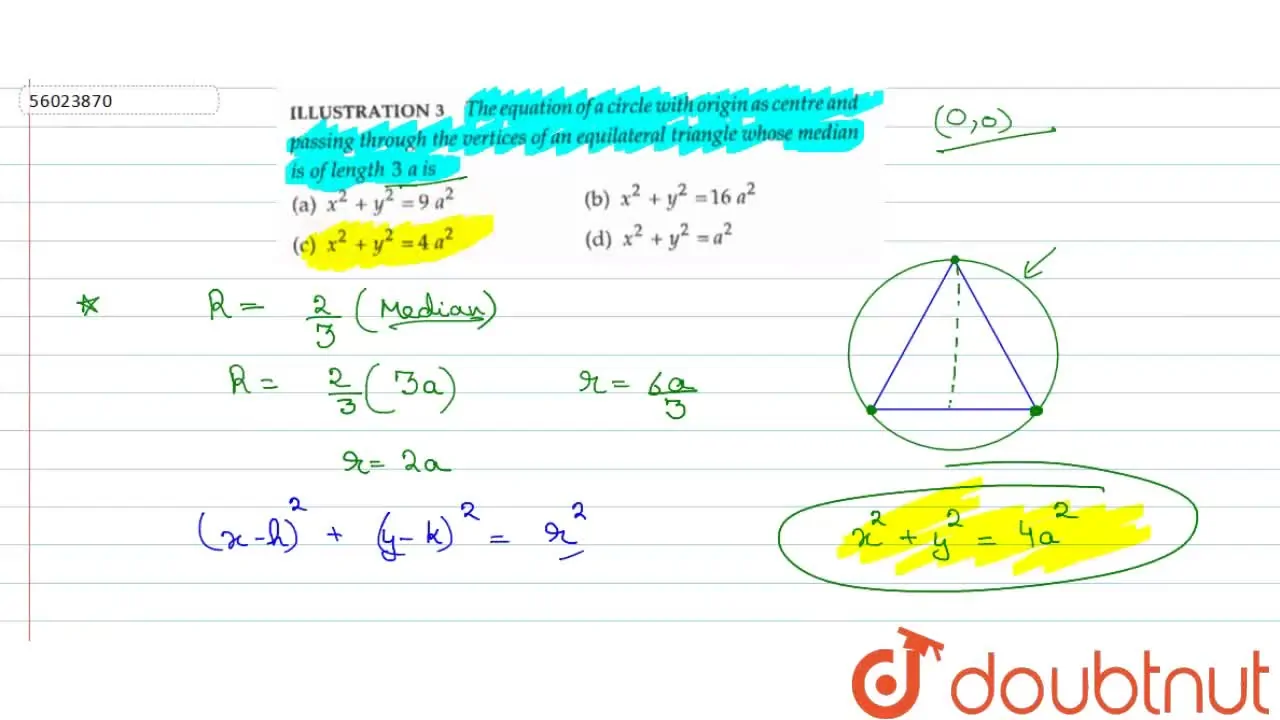 56023870
ILLUSTRATION 3 The equation of a circle with origin as centre and
passing through the vertices of an equilateral triangle whose median
is of length 3 a is
(a) x² + y² = 9 a²
(b) x² + y² = 16 a²
(c) x² + y² = 4 a²
(d) x² + y² = a²
(0,0)
R = 2/3 (Median)
R = 2/3 (3a)
r = 6a/3
r = 2a
(x-h)² + (y-k)² = r²
x² + y² = 4a²
doubtnut